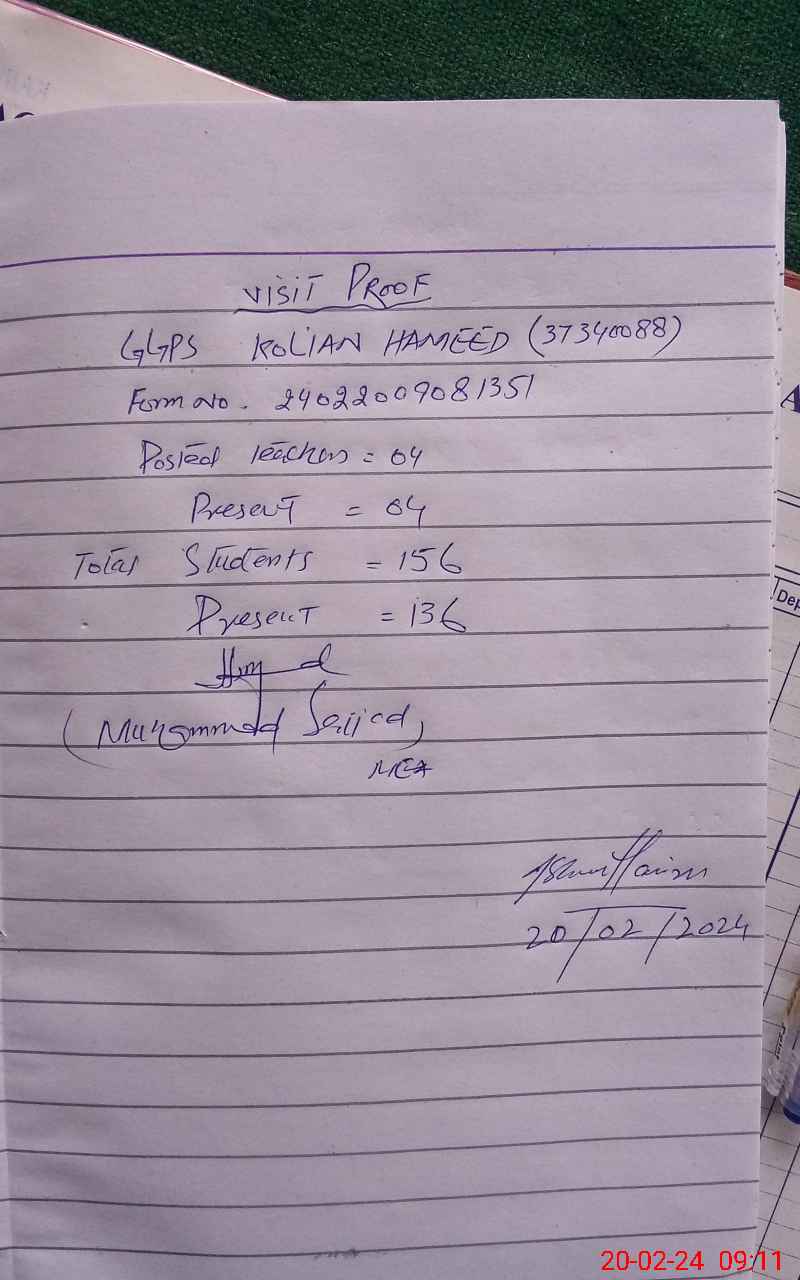 VISIT PROOF
GGPS KOLIAN HAMEED (37340088)
Form No. 24022009081351
Posted teachers = 04
Present = 04
Total Students = 156
Present = 136
(Muhammad Sajjad)
MEA
20/02/2024
Dep
20-02-24 09:11